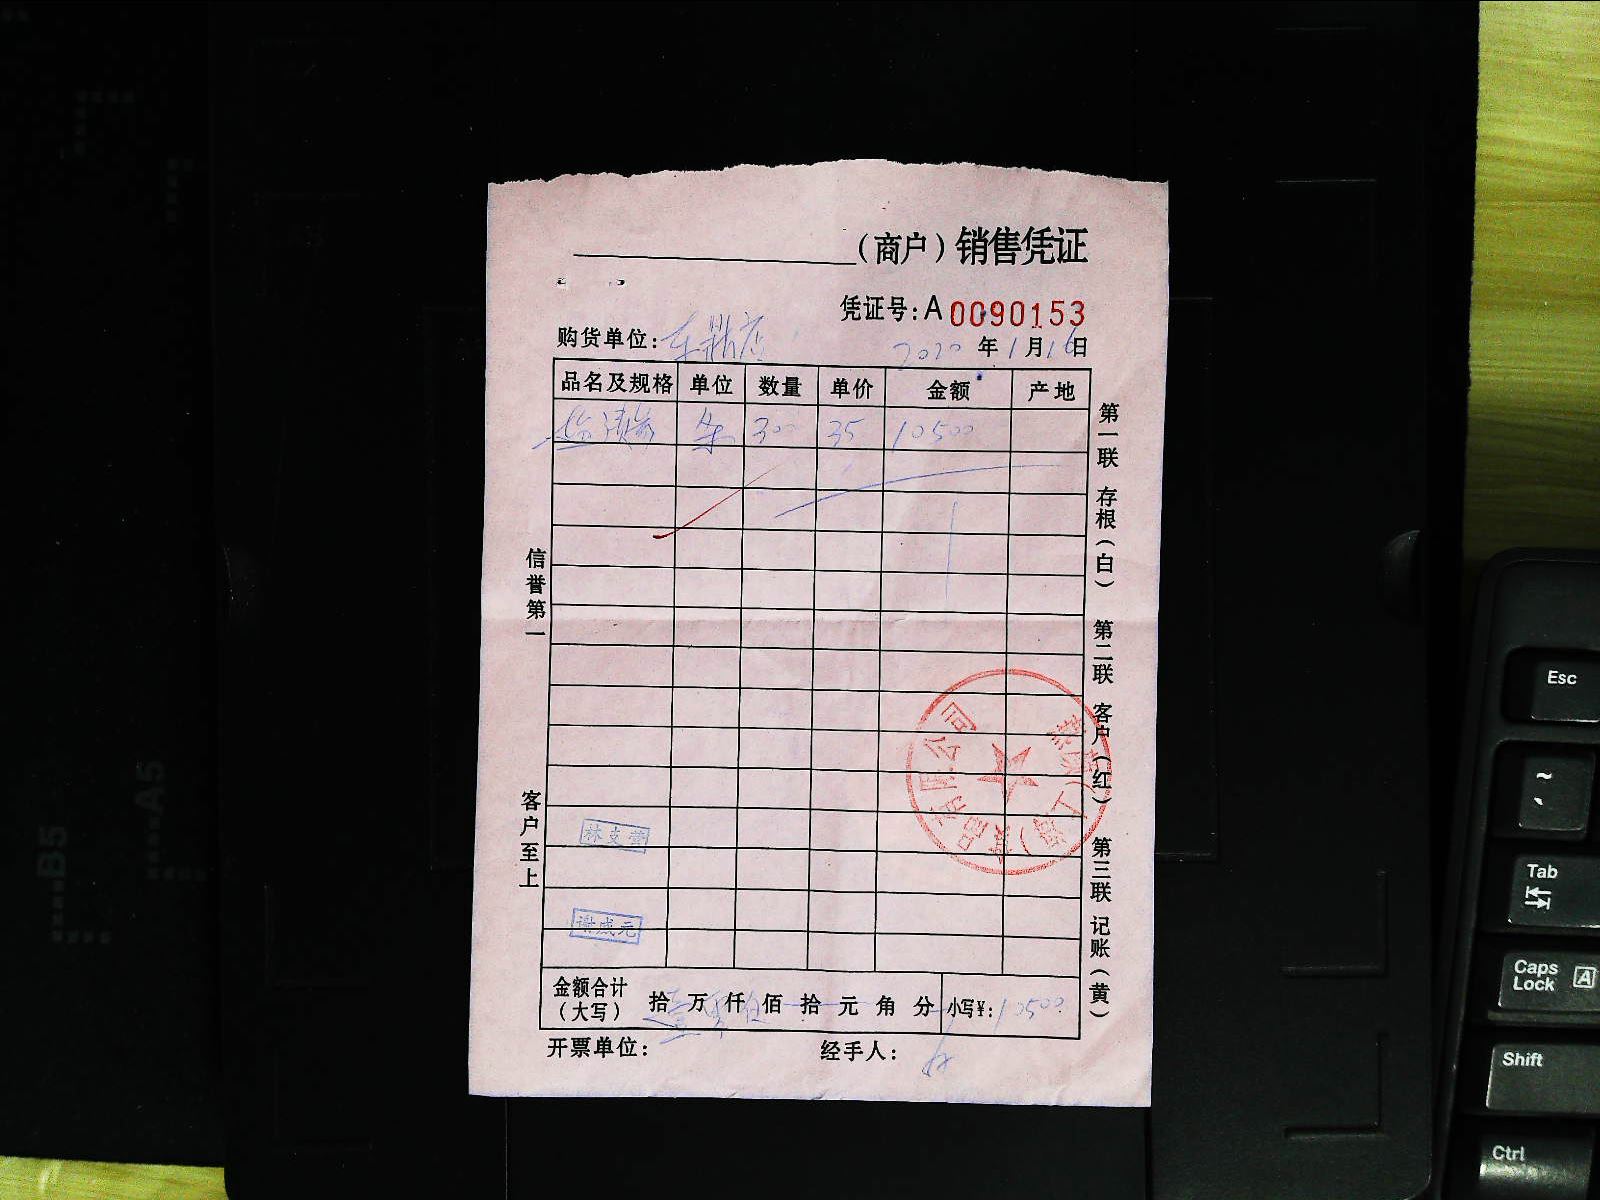 （商户）销售凭证
凭证号：A 0090153
购货单位：东鼎店
2020 年 1 月 16 日
品名及规格 单位 数量 单价 金额 产地
条 300 35 10500
信誉第一
客户至上
第一联 存根（白） 第二联 客户（红） 第三联 记账（黄）
有限公司
林支
谢成元
金额合计（大写） 拾 万 仟 佰 拾 元 角 分 小写¥：10500
开票单位： 经手人：
B5
A5
Esc
~
Tab
Caps Lock A
Shift
Ctrl